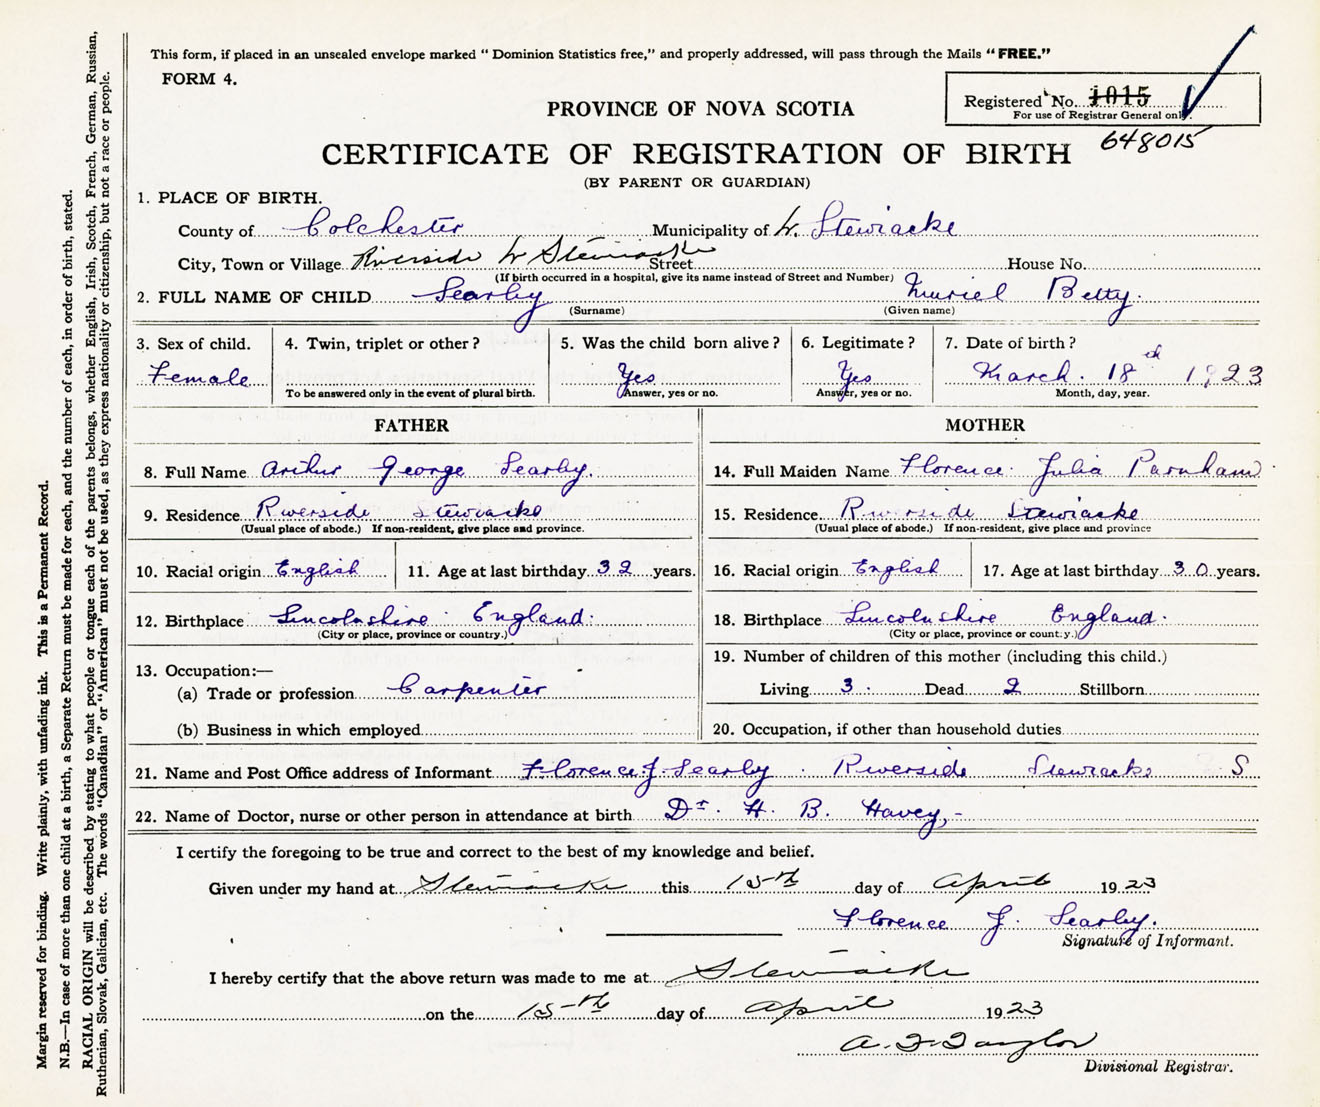 This form, if placed in an unsealed envelope marked "Dominion Statistics free," and properly addressed, will pass through the Mails "FREE."
FORM 4.
Registered No. 1015
For use of Registrar General only.
648015
PROVINCE OF NOVA SCOTIA
CERTIFICATE OF REGISTRATION OF BIRTH
(BY PARENT OR GUARDIAN)
1. PLACE OF BIRTH.
County of Colchester Municipality of W. Stewiacke
City, Town or Village Riverside W Stewiacke Street House No.
(If birth occurred in a hospital, give its name instead of Street and Number)
2. FULL NAME OF CHILD Searby Muriel Betty.
(Surname) (Given name)
3. Sex of child. 4. Twin, triplet or other? 5. Was the child born alive? 6. Legitimate? 7. Date of birth?
Female Yes Yes March. 18 1923
To be answered only in the event of plural birth. Answer, yes or no. Answer, yes or no. Month, day, year.
FATHER MOTHER
8. Full Name Arthur George Searby. 14. Full Maiden Name Florence Julia Parnham
9. Residence Riverside Stewiacke 15. Residence Riverside Stewiacke
(Usual place of abode.) If non-resident, give place and province. (Usual place of abode.) If non-resident, give place and province
10. Racial origin English 11. Age at last birthday 32 years. 16. Racial origin English 17. Age at last birthday 30 years.
12. Birthplace Lincolnshire England. 18. Birthplace Lincolnshire England.
(City or place, province or country.) (City or place, province or country.)
13. Occupation:— 19. Number of children of this mother (including this child.)
(a) Trade or profession Carpenter Living 3 Dead 2 Stillborn
(b) Business in which employed 20. Occupation, if other than household duties
21. Name and Post Office address of Informant Florence J. Searby Riverside Stewiacke S
22. Name of Doctor, nurse or other person in attendance at birth Dr. H. B. Havey,-
I certify the foregoing to be true and correct to the best of my knowledge and belief.
Given under my hand at Stewiacke this 15th day of April 1923
Florence J. Searby.
Signature of Informant.
I hereby certify that the above return was made to me at Stewiacke
on the 15th day of April 1923
A. F. Taylor
Divisional Registrar.
Margin reserved for binding. Write plainly, with unfading ink. This is a Permanent Record.
N.B.—In case of more than one child at a birth, a Separate Return must be made for each, and the number of each, in order of birth, stated.
RACIAL ORIGIN will be described by stating to what people or tongue each of the parents belongs, whether English, Irish, Scotch, French, German, Russian,
Ruthenian, Slovak, Galician, etc. The words "Canadian" or "American" must not be used, as they express nationality or citizenship, but not a race or people.